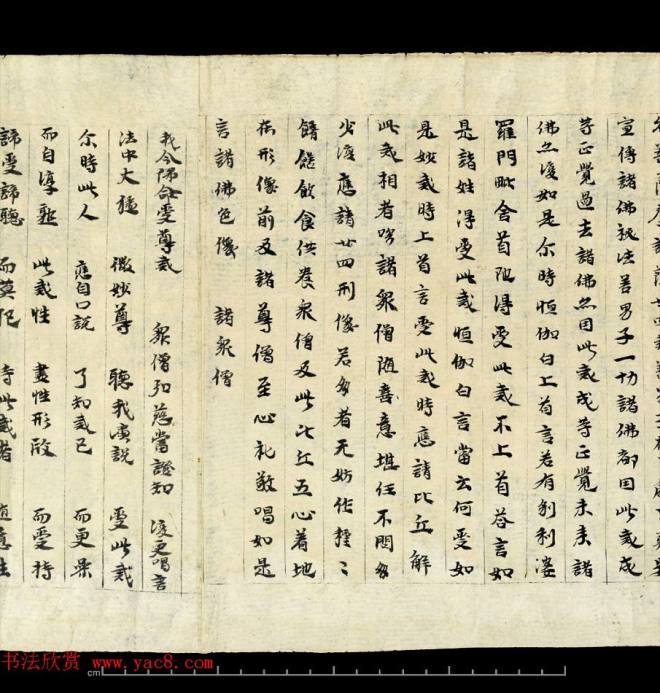 宣傳諸佛祕法善男子一切諸佛都因此戒成
等正覺過去諸佛亦因此戒成等正覺未來諸
佛亦復如是尒時恒伽白上首言若有剎利婆
羅門毗舍首陁得受此戒不上首荅言如
是諸姓得受此戒恒伽白言當云何受如
是妙戒時上首言受此戒時應請比丘解
此戒相者請眾僧隨意堪任不問多
少復應請廿四形像若多者无妨作種々
餚饍飲食供養眾僧及此比丘五心著地
在形像前及諸尊僧至心礼敬唱如是
言諸佛色像 諸眾僧
我今歸命受尊戒 眾僧弘慈當證知 復更唱言
法中大猛 微妙尊 聽我演說 受此戒
尒時此人 應自口說 了知戒已 而更
而自淳 此戒性 盡性形 而受持
諦受諦聽 而莫犯 持此戒者
书法欣赏 www.yac8.com
cm